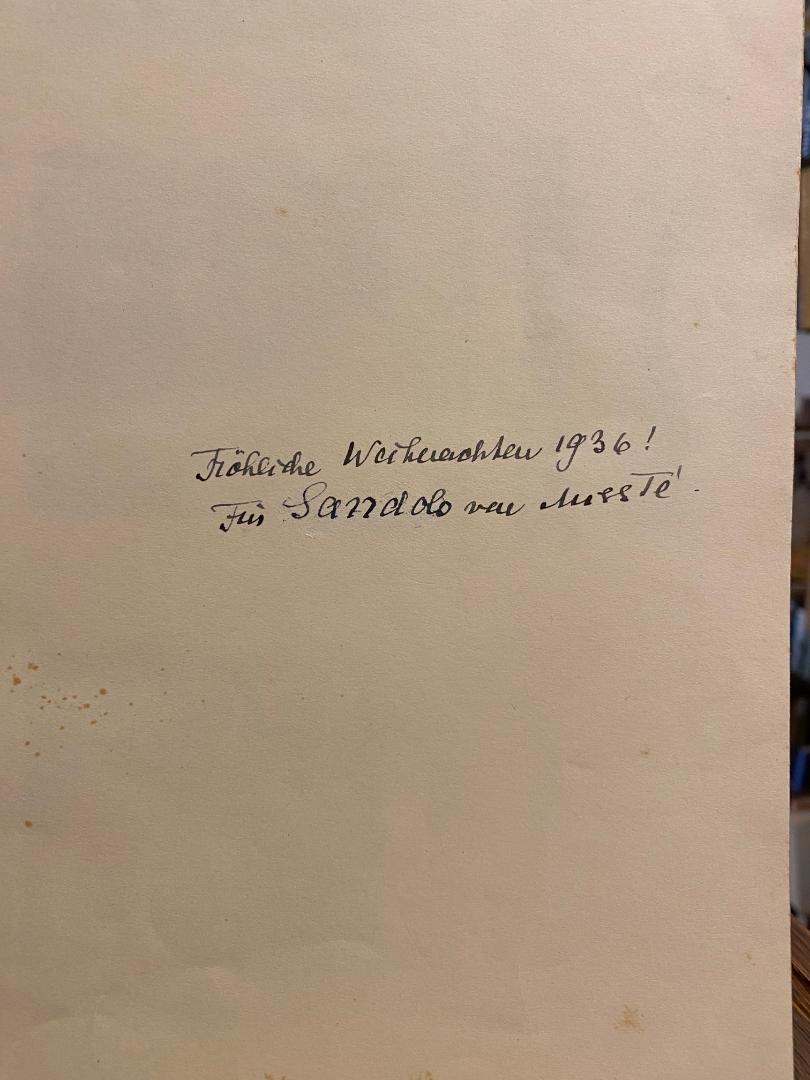 Fröhliche Weihnachten 1936!
Für Sandolo von Miss Té.